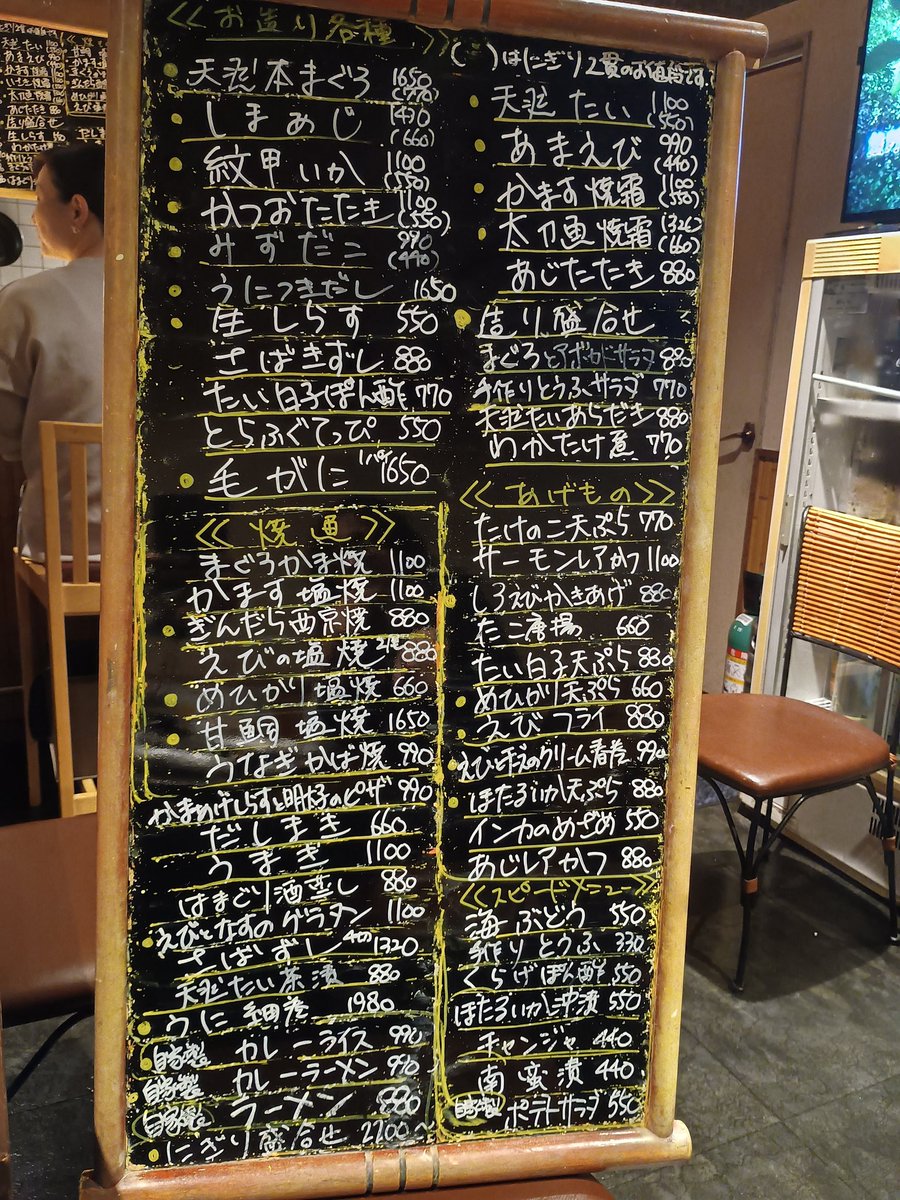 <<お造り各種>>
( )はにぎり2貫のお値段です
天然本まぐろ 1650
(770)
しまあじ 1430
(660)
紋甲いか 1100
(550)
かつおたたき 1100
(550)
みずだこ 990
(440)
うにつきだし 1650
生しらす 550
さばきずし 880
たい白子ぽん酢 770
とらふぐてっぴ 550
毛がに 1/2パイ 1650
天然たい 1100
(550)
あまえび 990
(440)
かます焼霜 1100
(550)
太刀魚焼霜 1320
(660)
あじたたき 880
造り盛合せ
まぐろとアボカドサラダ 880
手作りとうふサラダ 770
天然たいあらだき 880
わかたけ煮 770
<<焼逸>>
まぐろかま焼 1100
かます塩焼 1100
ぎんだら西京焼 880
えびの塩焼 2尾 880
めひかり塩焼 660
甘鯛塩焼 1650
うなぎかば焼 990
かまあげしらすと明太子のピザ 990
だしまき 660
うまき 1100
はまぐり酒蒸し 880
えびとなすのグラタン 1100
さばずし 4つ 1320
天然たい茶漬 880
うに細巻 1980
自家製 カレーライス 990
自家製 カレーラーメン 990
自家製 ラーメン 880
にぎり盛合せ 2200〜
<<あげもの>>
たけのこ天ぷら 770
サーモンレアかつ 1100
しろえびかきあげ 880
たこ唐揚 660
たい白子天ぷら 880
めひかり天ぷら 660
えびフライ 880
えびとチーズのクリーム春巻 990
ほたるいか天ぷら 880
インカのめざめ 550
あじレアかつ 880
<<スピードメニュー>>
海ぶどう 550
手作りとうふ 330
くらげぽん酢 550
ほたるいか沖漬 550
チャンジャ 440
南蛮漬 440
自家製 ポテトサラダ 550